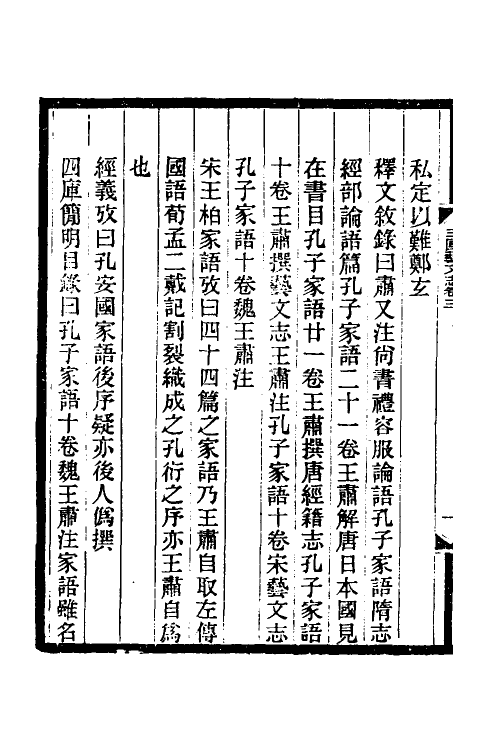 私定以難鄭玄
釋文敘錄曰肅又注尙書禮容服論語孔子家語隋志
經部論語篇孔子家語二十一卷王肅解唐日本國見
在書目孔子家語廿一卷王肅撰唐經籍志孔子家語
十卷王肅撰藝文志王肅注孔子家語十卷宋藝文志
孔子家語十卷魏王肅注
宋王柏家語攷曰四十四篇之家語乃王肅自取左傳
國語荀孟二戴記割裂織成之孔衍之序亦王肅自爲
也
經義攷曰孔安國家語後序疑亦後人僞撰
四庫簡明目錄曰孔子家語十卷魏王肅注家語雖名
三國藝文志卷三